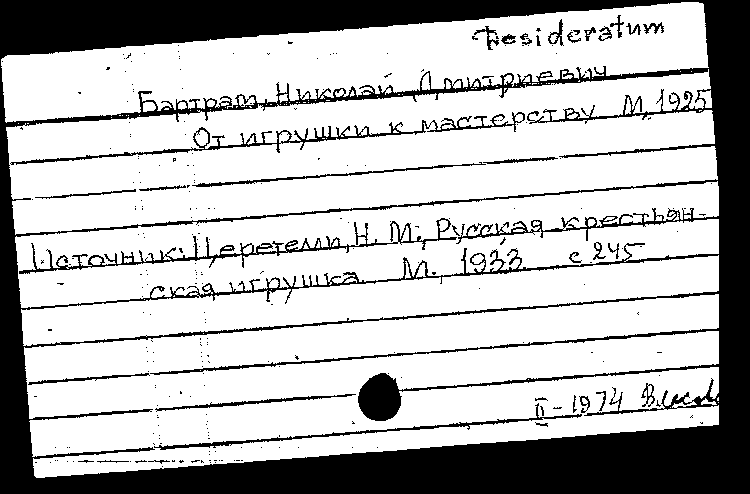 Desideratum
Бартрам, Николай Дмитриевич
От игрушки к мастерству М, 1925
Источник: Церетелли, Н. М., Русская крестьян-
ская игрушка М., 1933 с 245
II - 1974